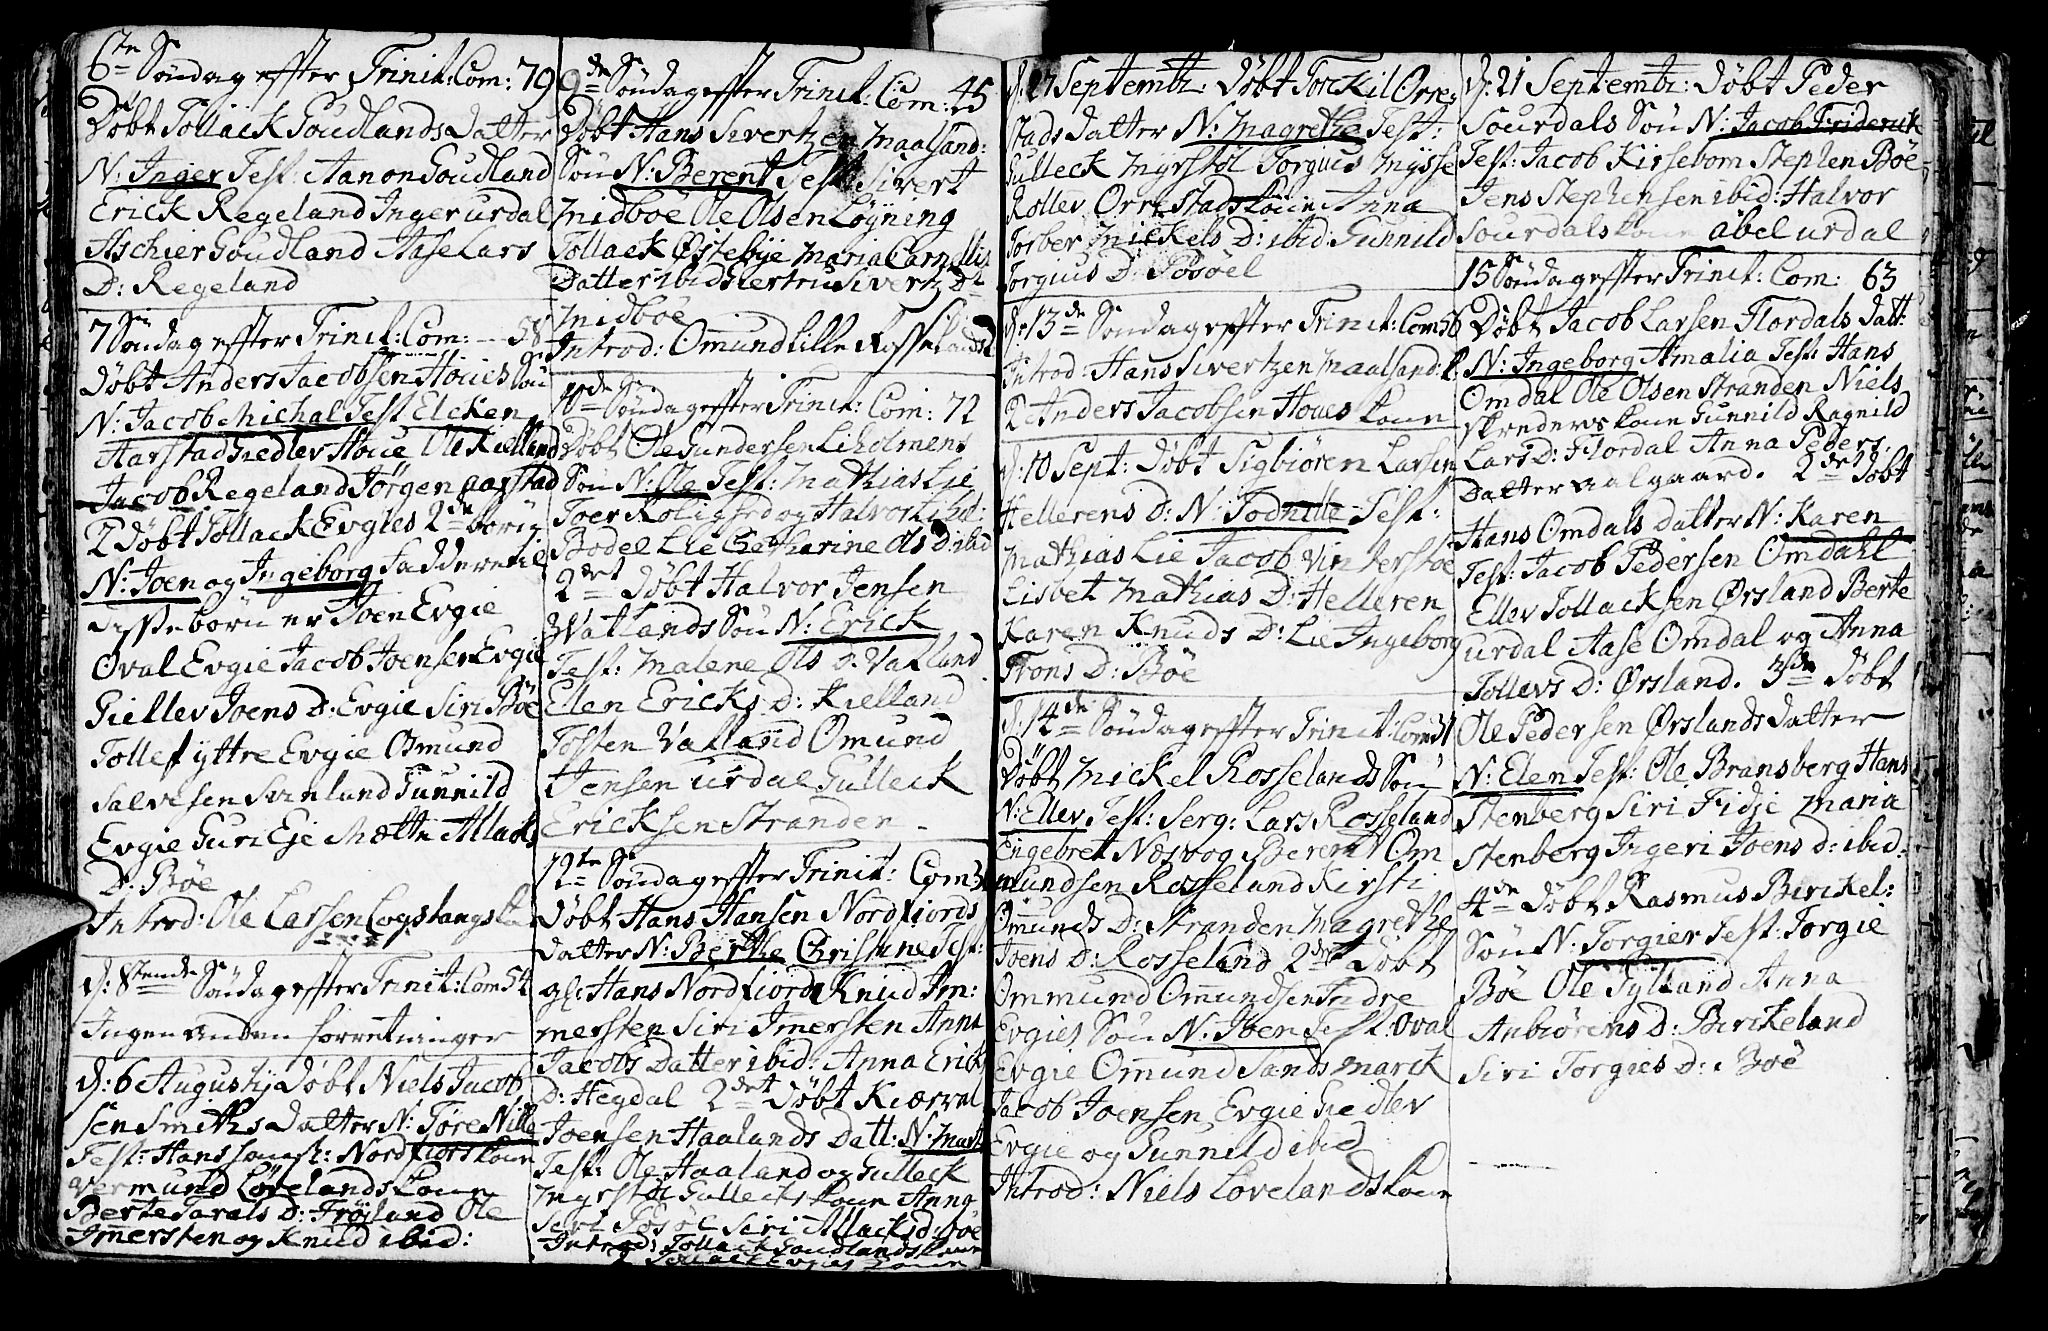 6te Søndag effter Trinit: Com: 79
Døbt Tollack Goudlands Datter
N: Inger Test: Aanon Goudland
Erick Regeland Inger urdal
Aschier Goudland Aase Lars
D: Regeland
7 Søndag effter Trinit: Com: 58
Døbt Anders Jacobsen Houes Søn
N: Jacob Michal Test Elcken
Aarstad Giedlev Houe Ole Kielland
Jacob Regeland Jörgen aarstad
2 Døbt Tollack Evgies 2de børn
N: Joen og Ingeborg Fadderne til
disse börn er Joen Evgie
Oval Evgie Jacob Joensen Evgie
Giellev Joens D: Evgie Siri Böe
Tollef yttre Evgie Omund
Salvesen Svinland Gunnild
Evgie Guri Eje Mætte Allacks
D: Böe
Introd: Ole Larsen Logstangs
d: 8tende Søndag effter Trinit: Com 54
Ingen anden forretninger
d: 6 Augustij Døbt Niels Jacob
sen Smiths Datter N: Tøre Nille
Test: Hans Nordfiors kone
Vermund Lövelands kone
Berte Tarals D: Fröiland Ole
Imersten og Knud ibid:
9de Søndag effter Trinit: Com: 45
Døbt Hans Sivertzen Maalsand:
Søn N: Berent Test Sivert
Midboe Ole Olsen Löyning
Tollack Østebye Maria Carnellis
Datter ibid Sivertz D:
Midboe
Introd: Omund Lille Rosselands
10de Søndag effter Trinit: Com: 72
Døbt Ole Gundersen Liholmens
Søn N: Ole Test: Mathias Lie
Toer Roligfed og Halvor Lihol:
Bodel Lie Catharine Ols D: ibid
2det Døbt Halvor Jensen
Watlands Søn N: Erick
Test: Malene Ols D: Vatland
Elen Ericks D: Kielland
Tosten Vatland Omund
Jensen urdal Gulleck
Ericksen Stranden
12te Søndag effter Trinit: Com
Døbt Hans Hansen Nordfiords
datter N: Berthe Christine Test:
gl: Hans Nordfiord Knud Im:
mersten Siri Imersten Anna
Jacobs Datter ibid: Anna Ericks
D: Hegdal 2det Døbt Kiørval
Joensen Haalands Datt: N:
Test: Ole Haaland og Gulleck
Myrstöl Gullecks kone Anna
Siri Allacks D: Böe
Introd: Tollack Goudlands kone
Tollack Evgies kone
d: 17 Septembr: Døbt Torckil Orre:
stads datter N: Magrethe Test:
Gulleck Myrstöl Torgius Mysse
Rollev Orrestads kone Anna
Torber Mickels D: ibid: Gunnild
Torgius D:
d: 13de Søndag effter Trinit: Com 56
Introd: Hans Sivertzen Maalsand: k:
2 Anders Jacobsen Houes kone
d: 10 Sept: Døbt Sigbiören Larsen
Hellerens D: N: Todnille Test:
Mathias Lie Jacob Vinterstöe
Lisbet Mathias D: Helleren
Karen Knuds D: Lie Ingeborg
Trons D: Böe
d: 14de Søndag effter Trinit: Com 31
Døbt Mickel Rosselands Søn
N: Ellev Test: Serg: Lars Rosseland
Engebret Nesvog Berent Om
mundsen Rosseland Kirsti
Omunds D: Stranden Magrethe
Joens D: Rosseland 2det Døbt
Ommund Omundsen Indre
Evgies Søn N: Joen Test: Oval
Evgie Omund Sandsmarck
Jacob Joensen Evgie Giedlev
Evgie og Gunnild ibid
Introd: Niels Lovelands kone
d: 21 Septembr: Døbt Peder
Sourdals Søn N: Jacob Friderick
Test: Jacob Kirsebom Stephen Böe
Jens Stephensen ibid: Halvor
Sourdals kone Abel urdal
15 Søndag effter Trinit: Com: 63
Døbt Jacob Larsen Flordals Datt:
N: Ingeborg Amalia Test: Hans
Omdal Ole Olsen Stranden Niels
skreders kone Gunnild Ragnild
Lars D: Flordal Anna Peders
Datter aalgaard. 2det Døbt
Hans Omdals datter N: Karen
Test: Jacob Pedersen Omdahl
Ellev Tollacksen Ørsland Berte
urdal Aase Omdal og Anna
Tollevs D: Ørsland. 3de Døbt
Ole Pedersen Ørslands datter
N: Elen Test: Ole Bransberg Hans
Stenberg Siri Fidje Maria
Stenberg Ingeri Joens D: ibid:
4de Døbt Rasmus Birckel:
Søn N: Torgier Test: Torgie
Böe Ole Tylland Anna
Anbiörens D: Birckeland
Siri Torgies D: Böe